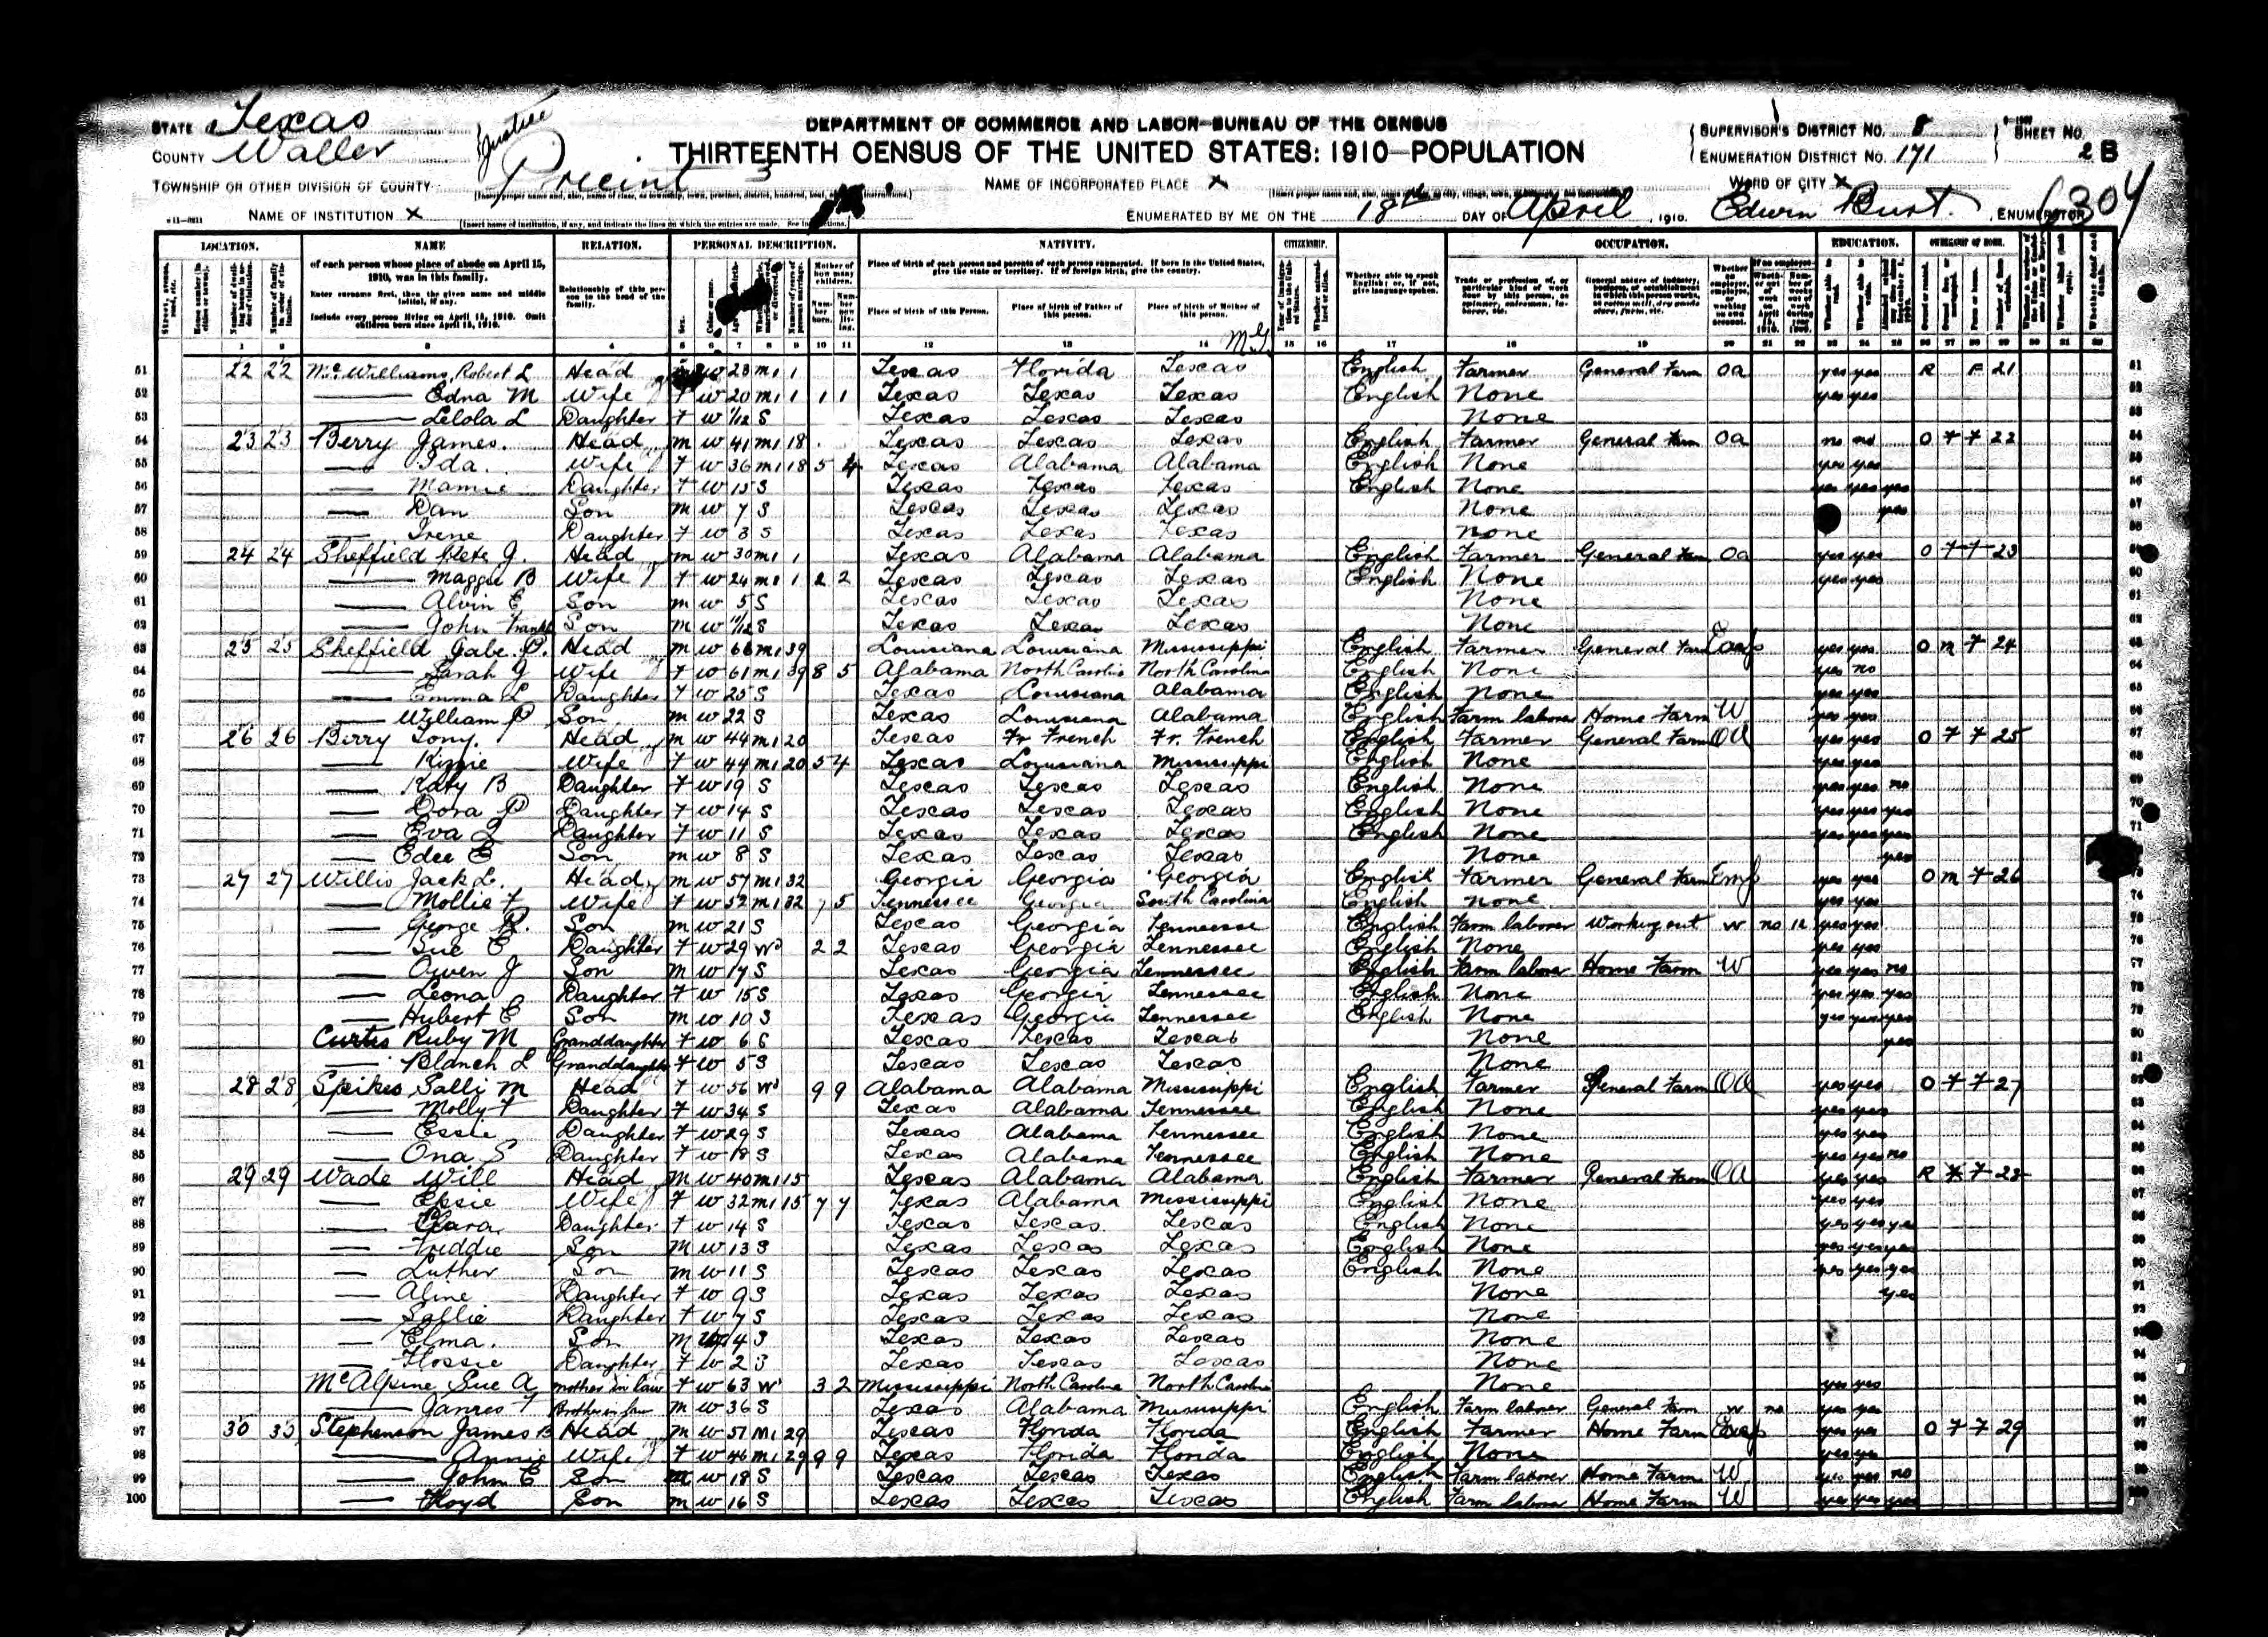 STATE Texas
COUNTY Waller
Justice
DEPARTMENT OF COMMERCE AND LABOR-BUREAU OF THE CENSUS
THIRTEENTH CENSUS OF THE UNITED STATES: 1910-POPULATION
SUPERVISOR'S DISTRICT NO. 8
ENUMERATION DISTRICT NO. 171
SHEET NO. 2 B
TOWNSHIP OR OTHER DIVISION OF COUNTY Precint 3
NAME OF INCORPORATED PLACE X
WORD OF CITY X
NAME OF INSTITUTION X
ENUMERATED BY ME ON THE 18th DAY OF April, 1910. Edwin Burt. , ENUMERATOR
6304
LOCATION. NAME RELATION. PERSONAL DESCRIPTION. NATIVITY. CITIZENSHIP. OCCUPATION. EDUCATION. OWNERSHIP OF HOME.
of each person whose place of abode on April 15, 1910, was in this family.
Enter surname first, then the given name and middle initial, if any.
Include every person living on April 15, 1910. Omit children born since April 15, 1910.
Relationship of this person to the head of the family.
Place of birth of each person and parents of each person enumerated. If born in the United States, give the state or territory. If of foreign birth, give the country.
Place of birth of this Person. Place of birth of Father of this person. Place of birth of Mother of this person.
Whether able to speak English; or, if not, give language spoken.
1 2 3 4 5 6 7 8 9 10 11 12 13 14 15 16 17 18 19 20 21 22 23 24 25 26 27 28 29 30 31 32
51 22 22 McWilliams, Robert L Head w 23 m1 1 Texas Florida Texas English Farmer General Farm Oa yes yes R F 21
52 Edna M Wife F w 20 m1 1 1 1 Texas Texas Texas English None yes yes
53 Lelola L Daughter F w 1/12 S Texas Texas Texas None
54 23 23 Berry James. Head m w 41 m1 18 Texas Texas Texas English Farmer General Farm Oa no no O F F 22
55 Ida. Wife F w 36 m1 18 5 4 Texas Alabama Alabama English None yes yes
56 Mamie Daughter F w 15 S Texas Texas Texas English None yes yes yes
57 Dan Son m w 7 S Texas Texas Texas None yes
58 Irene Daughter F w 3 S Texas Texas Texas None
59 24 24 Sheffield Clete J. Head m w 30 m1 1 Texas Alabama Alabama English Farmer General Farm Oa yes yes O F F 23
60 Maggie B Wife F w 24 m1 1 2 2 Texas Texas Texas English None yes yes
61 Alvin E Son m w 5 S Texas Texas Texas None
62 John Frankl Son m w 11/12 S Texas Texas Texas None
63 25 25 Sheffield Gabe P. Head m w 66 m1 39 Louisiana Louisiana Mississippi English Farmer General Farm yes yes O m F 24
64 Sarah J Wife F w 61 m1 39 8 5 Alabama North Carolina North Carolina English None yes no
65 Emma L Daughter F w 25 S Texas Louisiana Alabama English None yes yes
66 William P Son m w 22 S Texas Louisiana Alabama English Farm laborer Home Farm W yes yes
67 26 26 Berry Tony. Head m w 44 m1 20 Texas Fr French Fr. French English Farmer General Farm OA yes yes O F F 25
68 Kizzie Wife F w 44 m1 20 5 4 Texas Louisiana Mississippi English None yes yes
69 Katy B Daughter F w 19 S Texas Texas Texas English None yes yes no
70 Dora P Daughter F w 14 S Texas Texas Texas English None yes yes yes
71 Eva L Daughter F w 11 S Texas Texas Texas English None yes yes yes
72 Edee E Son m w 8 S Texas Texas Texas None yes
73 27 27 Willis Jack L. Head m w 57 m1 32 Georgia Georgia Georgia English Farmer General Farm Emp yes yes O m F 26
74 Mollie F Wife F w 52 m1 32 7 5 Tennessee Georgia South Carolina English None yes yes
75 George R. Son m w 21 S Texas Georgia Tennessee English Farm laborer Working out w no 12 yes yes
76 Sue E Daughter F w 29 Wd 2 2 Texas Georgia Tennessee English None yes yes
77 Owen J Son m w 17 S Texas Georgia Tennessee English Farm laborer Home Farm W yes yes no
78 Leona Daughter F w 15 S Texas Georgia Tennessee English None yes yes yes
79 Hubert E Son m w 10 S Texas Georgia Tennessee English None yes yes yes
80 Curtis Ruby M Granddaughter F w 6 S Texas Texas Texas None yes
81 Blanch L Granddaughter F w 5 S Texas Texas Texas None
82 28 28 Speikes Salli M Head F w 56 Wd 9 9 Alabama Alabama Mississippi English Farmer General Farm OA yes yes O F F 27
83 Molly F Daughter F w 34 S Texas Alabama Tennessee English None yes yes
84 Essie Daughter F w 29 S Texas Alabama Tennessee English None yes yes
85 Ona S Daughter F w 18 S Texas Alabama Tennessee English None yes yes no
86 29 29 Wade Will Head M w 40 m1 15 Texas Alabama Alabama English Farmer General Farm OA yes yes R F 28
87 Essie Wife F w 32 m1 15 7 7 Texas Alabama Mississippi English None yes yes
88 Clara Daughter F w 14 S Texas Texas Texas English None yes yes yes
89 Freddie Son M w 13 S Texas Texas Texas English None yes yes yes
90 Luther Son m w 11 S Texas Texas Texas English None yes yes yes
91 Aline Daughter F w 9 S Texas Texas Texas None yes
92 Sallie Daughter F w 7 S Texas Texas Texas None
93 Elma. Son m 4 S Texas Texas Texas None
94 Flossie Daughter F w 2 S Texas Texas Texas None
95 McAlpine Sue A mother in law F w 63 Wd 3 2 Mississippi North Carolina North Carolina None yes yes
96 Brother in law m w 36 S Texas Alabama Mississippi English Farm laborer General Farm w no yes yes
97 30 30 Stephenson James B Head m w 57 m1 29 Texas Florida Florida English Farmer Home Farm Emp yes yes O F F 29
98 Annie Wife F w 46 m1 29 9 9 Texas Florida Florida English None yes yes
99 John E Son m w 18 S Texas Texas Texas English Farm laborer Home Farm W yes yes no
100 Floyd Son m w 16 S Texas Texas Texas English Farm laborer Home Farm W yes yes yes